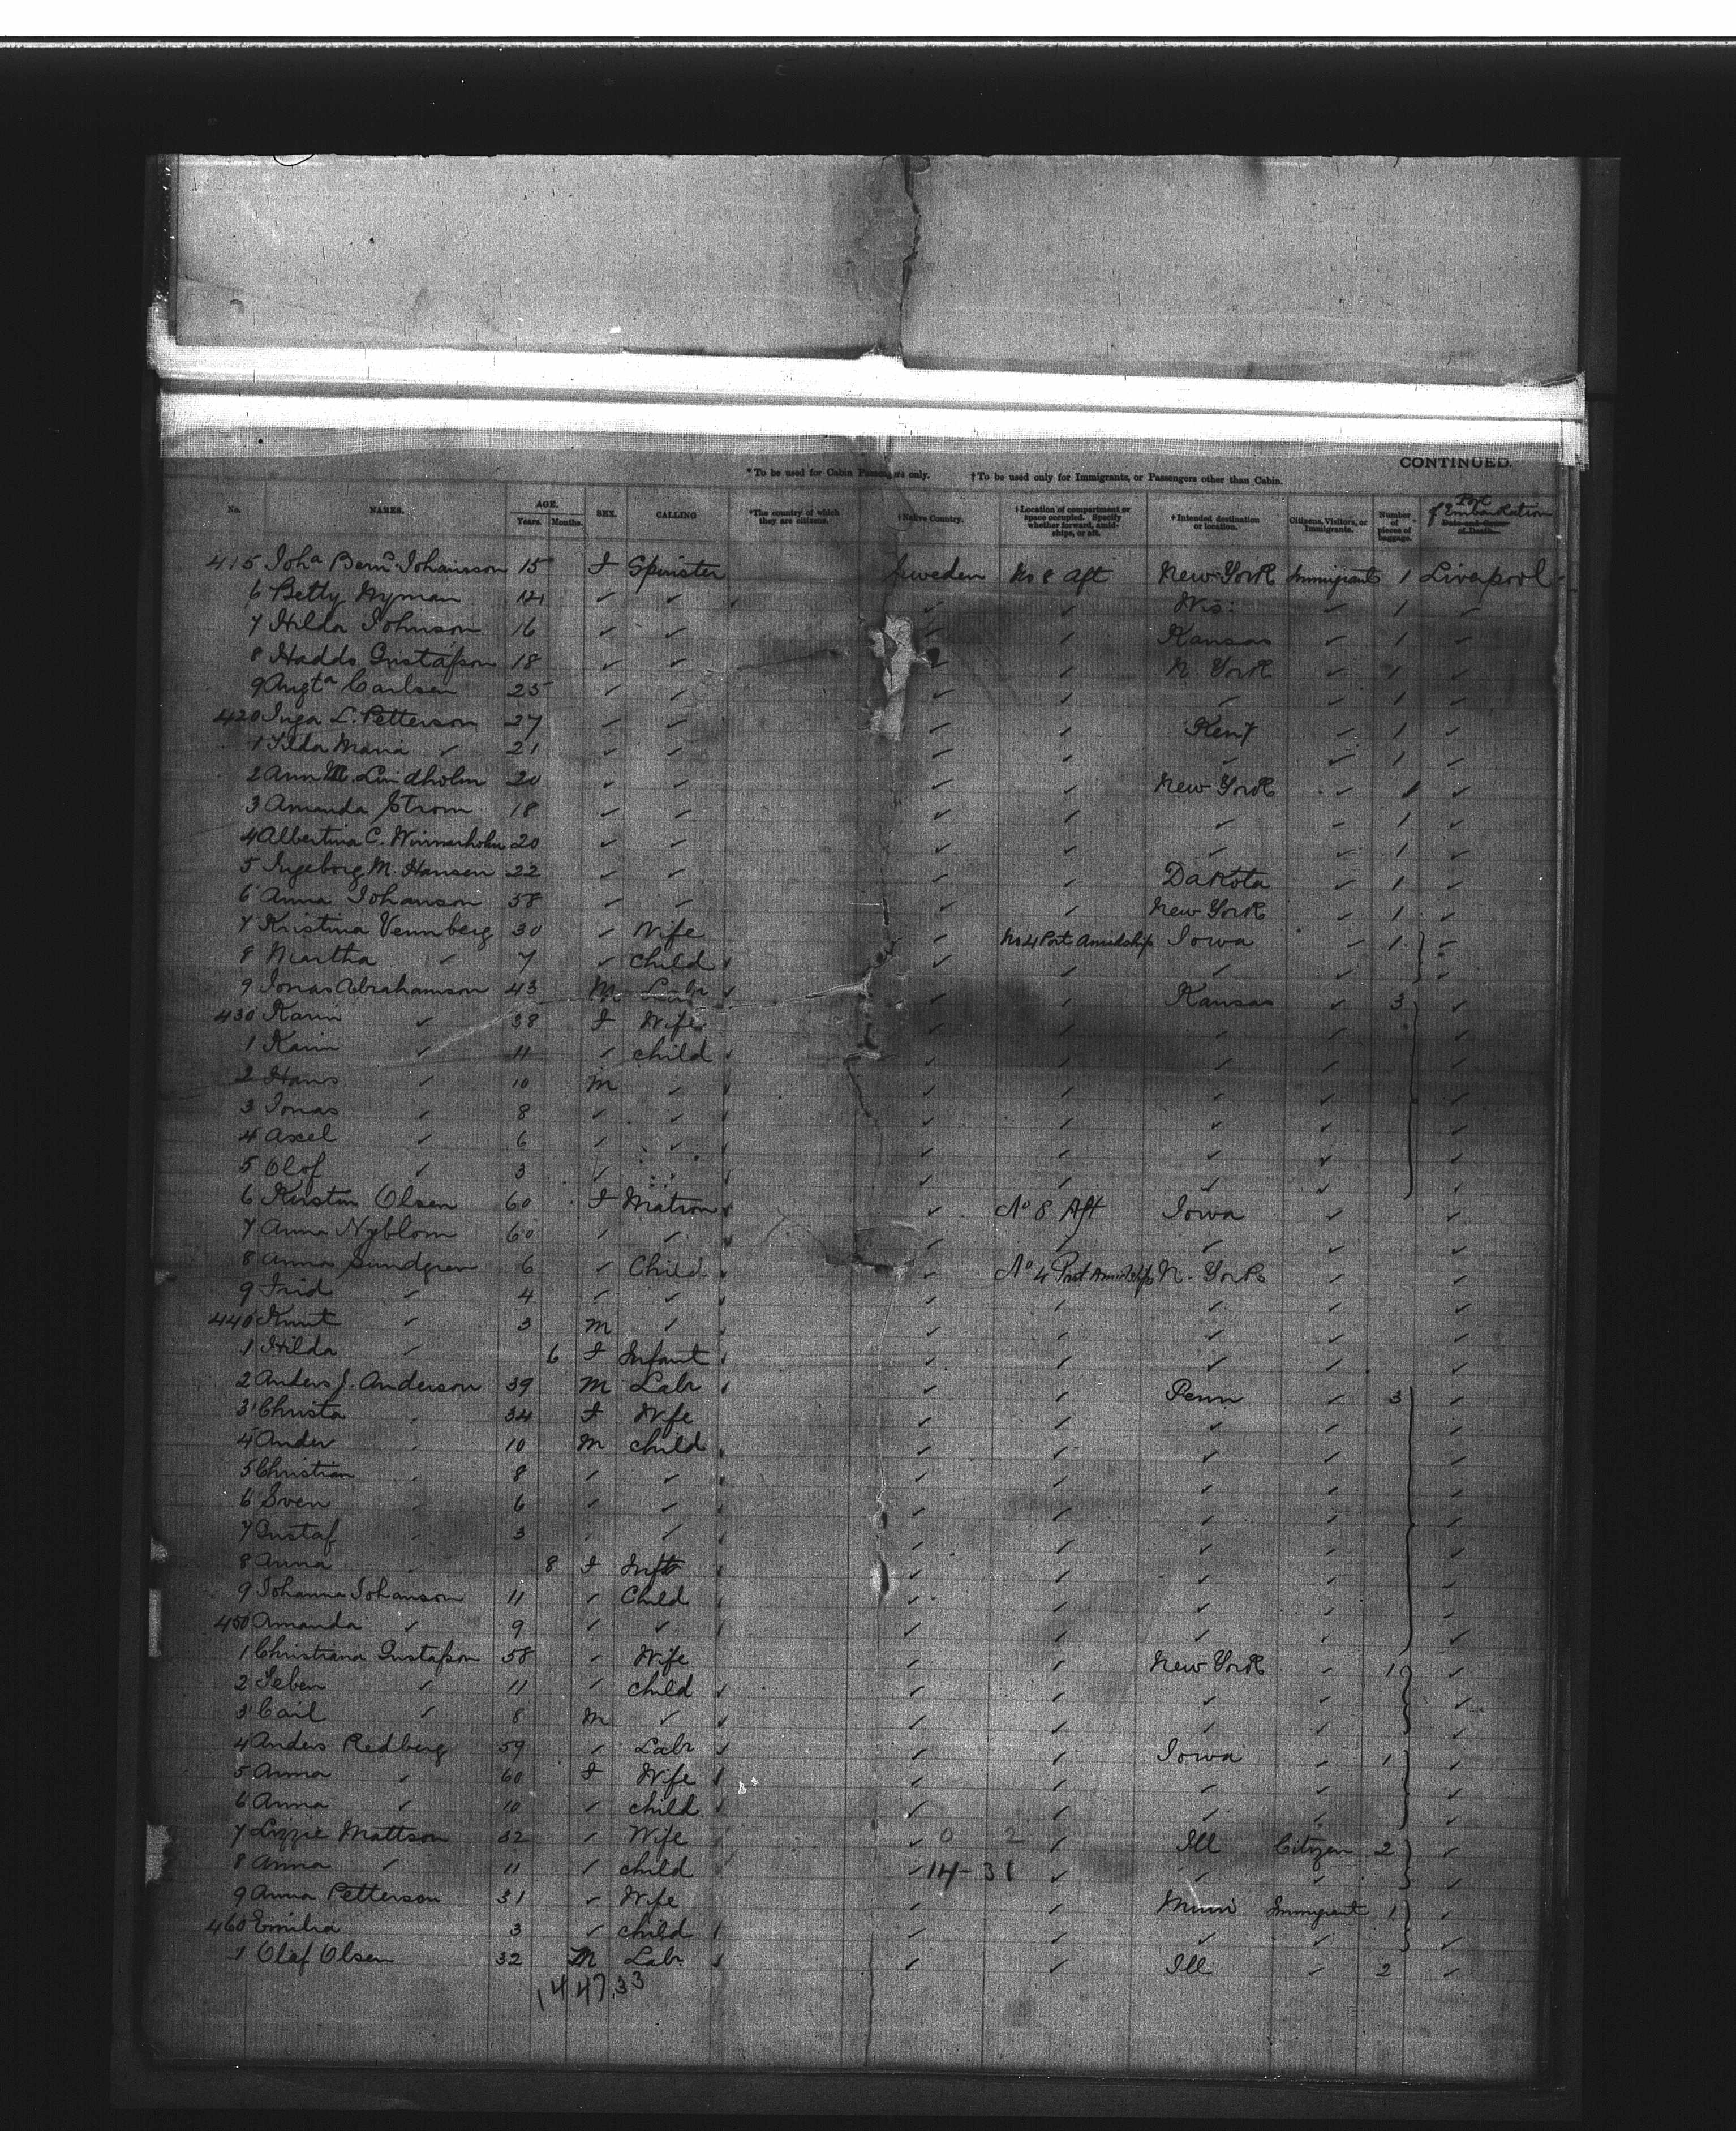 CONTINUED.
* To be used for Cabin Passengers only. † To be used only for Immigrants, or Passengers other than Cabin.
No. NAMES. AGE. Years. Months. SEX. CALLING *The country of which they are citizens. †Native Country. †Location of compartment or space occupied. Specify whether forward, amidships, or aft. †Intended destination or location. Citizens, Visitors, or Immigrants. Number of pieces of baggage. Port of Embarkation Date and Cause of Death.
415 Joha Berna Johansson 15 F Spinster Sweden No 8 Aft New York Immigrants 1 Liverpool
6 Betty Nyman 14 ✓ ✓ ✓ ✓ Wis: ✓ 1 ✓
7 Hilda Johnson 16 ✓ ✓ ✓ ✓ Kansas ✓ 1 ✓
8 Hadds Gustafson 18 ✓ ✓ ✓ ✓ N. York ✓ 1 ✓
9 Augta Carlsen 25 ✓ ✓ ✓ ✓ ✓ ✓ 1 ✓
420 Inga L. Petterson 27 ✓ ✓ ✓ ✓ Keny ✓ 1 ✓
1 Tilda Maria ✓ 21 ✓ ✓ ✓ ✓ ✓ ✓ 1 ✓
2 Ann M. Lindholm 20 ✓ ✓ ✓ ✓ New York ✓ 1 ✓
3 Amanda Strom 18 ✓ ✓ ✓ ✓ ✓ ✓ 1 ✓
4 Albertina C. Wimerholm 20 ✓ ✓ ✓ ✓ ✓ ✓ 1 ✓
5 Ingeborg M. Hansen 22 ✓ ✓ ✓ ✓ Dakota ✓ 1 ✓
6 Anna Johanson 58 ✓ ✓ ✓ ✓ New York ✓ 1 ✓
7 Kristina Vennberg 30 ✓ Wife ✓ No 4 Port Amidship Iowa ✓ 1 ✓
8 Martha ✓ 7 ✓ Child ✓ ✓ ✓ ✓ ✓
9 Jonas Abrahamson 43 M Labr ✓ ✓ Kansas ✓ 3 ✓
430 Karin ✓ 38 F Wife ✓ ✓ ✓ ✓ ✓
1 Karin ✓ 11 ✓ child ✓ ✓ ✓ ✓ ✓
2 Hans ✓ 10 M ✓ ✓ ✓ ✓ ✓ ✓
3 Jonas ✓ 8 ✓ ✓ ✓ ✓ ✓ ✓ ✓
4 Axel ✓ 6 ✓ ✓ ✓ ✓ ✓ ✓ ✓
5 Olof ✓ 3 ✓ ✓ ✓ ✓ ✓ ✓
6 Kristin Olsen 60 F Matron ✓ No 8 Aft Iowa ✓ ✓
7 Anna Nyblom 60 ✓ ✓ ✓ ✓ ✓ ✓ ✓
8 Anna Sundgren 6 ✓ Child ✓ No 4 Port Amidship N. York ✓ ✓
9 Frid ✓ 4 ✓ ✓ ✓ ✓ ✓ ✓ ✓
440 Knut ✓ 3 M ✓ ✓ ✓ ✓ ✓ ✓
1 Hilda ✓ 6 F Infant ✓ ✓ ✓ ✓ ✓
2 Anders J. Anderson 39 M Labr ✓ ✓ Penn ✓ 3 ✓
3 Christa ✓ 34 F Wife ✓ ✓ ✓ ✓ ✓
4 Ander ✓ 10 M child ✓ ✓ ✓ ✓ ✓
5 Christian ✓ 8 ✓ ✓ ✓ ✓ ✓ ✓ ✓
6 Sven ✓ 6 ✓ ✓ ✓ ✓ ✓ ✓ ✓
7 Gustaf ✓ 3 ✓ ✓ ✓ ✓ ✓ ✓ ✓
8 Anna ✓ 8 F Inft ✓ ✓ ✓ ✓ ✓
9 Johanna Johanson 11 ✓ Child ✓ ✓ ✓ ✓ ✓
450 Amanda ✓ 9 ✓ ✓ ✓ ✓ ✓ ✓ ✓
1 Christiana Gustafson 58 ✓ Wife ✓ ✓ New York ✓ 1 ✓
2 Seben ✓ 11 ✓ child ✓ ✓ ✓ ✓ ✓
3 Carl ✓ 8 M ✓ ✓ ✓ ✓ ✓ ✓
4 Anders Redberg 59 ✓ Labr ✓ ✓ Iowa ✓ 1 ✓
5 Anna ✓ 60 F Wife ✓ ✓ ✓ ✓ ✓
6 Anna ✓ 10 ✓ child ✓ ✓ ✓ ✓ ✓
7 Lizzie Mattson 32 ✓ Wife ✓ 0 2 ✓ Ill Citizen 2 ✓
8 Anna ✓ 11 ✓ child ✓ 14-31 ✓ ✓ ✓ ✓
9 Anna Petterson 31 ✓ Wife ✓ ✓ Minn Immigrant 1 ✓
460 Emilia 3 ✓ child ✓ ✓ ✓ ✓ ✓
1 Olaf Olsen 32 M Labr ✓ ✓ Ill ✓ 2 ✓
1447.33